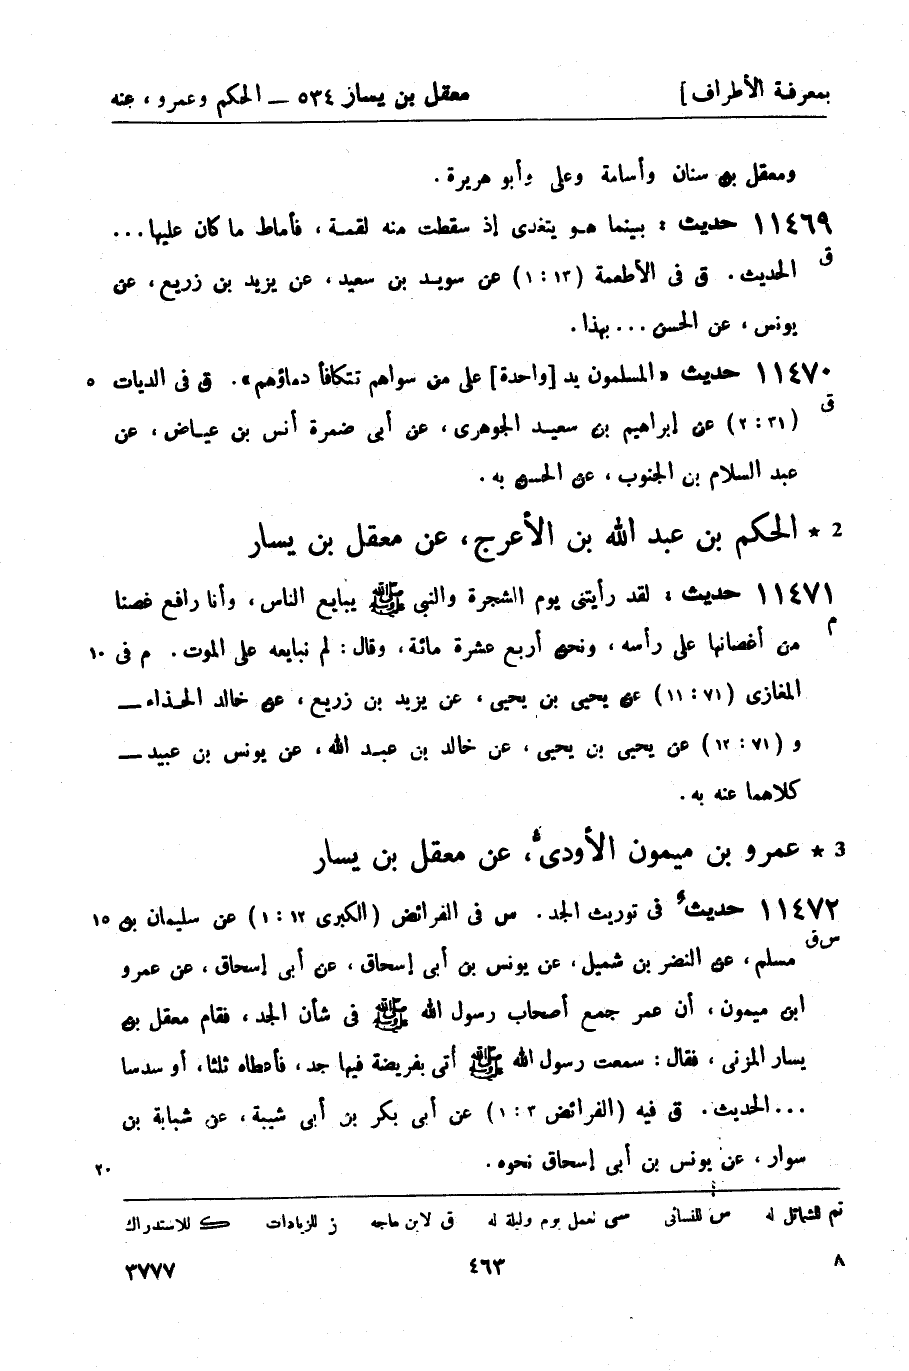 بمعرفة الأطراف] معقل بن يسار ٥٣٤ ــ الحكم وعمرو ، عنه
ومعقل بن سنان وأسامة وعلى وأبو هريرة .
١١٤٦٩ حديث : بينما هـو يتغدى إذ سقطت منه لقمـة ، فأماط ما كان عليها ...
ق
الحديث . ق فى الأطعمة (١٣ : ١) عن سويـد بن سعيد ، عن يزيد بن زريع ، عن
يونس ، عن الحسن ... بهذا .
١١٤٧٠ حديث « المسلمون يد [واحدة] على من سواهم تتكافأ دماؤهم» . ق فى الديات ٥
ق
(٣١ : ٢) عن إبراهيم بن سعيـد الجوهرى ، عن أبى ضمرة أنس بن عيـاض ، عن
عبد السلام بن الجنوب ، عن الحسن به .
2 * الحكم بن عبد الله بن الأعرج ، عن معقل بن يسار
١١٤٧١ حديث : لقد رأيتنى يوم الشجرة والنبى ﷺ يبايع الناس ، وأنا رافع غصنا
م
من أغصانها على رأسه ، ونحن أربع عشرة مائة ، وقال : لم نبايعه على الموت . م فى ١٠
المغازى (٧١ : ١١) عن يحيى بن يحيى ، عن يزيد بن زريع ، عن خالد الحـذاء ــ
و (٧١ : ١٢) عن يحيى بن يحيى ، عن خالد بن عبـد الله ، عن يونس بن عبيد ــ
كلاهما عنه به .
3 * عمرو بن ميمون الأودى ، عن معقل بن يسار
١١٤٧٢ حديث فى توريث الجد . س فى الفرائض (الكبرى ١٢ : ١) عن سليمان بن ١٥
س ق
مسلم ، عن النضر بن شميل ، عن يونس بن أبى إسحاق ، عن أبى إسحاق ، عن عمرو
ابن ميمون ، أن عمر جمع أصحاب رسول الله ﷺ فى شأن الجد ، فقام معقل بن
يسار المزنى ، فقال : سمعت رسول الله ﷺ أتى بفريضة فيها جد ، فأعطاه ثلثا ، أو سدسا
... الحديث . ق فيه (الفرائض ٣ : ١) عن أبى بكر بن أبى شيبة ، عن شبابة بن
سوار ، عن يونس بن أبى إسحاق نحوه . ٢٠
تم للشمائل له س للنسائى سى لعمل يوم وليلة له ق لابن ماجه ز للزيادات ك للاستدراك
٨ ٤٦٣ ٣٧٧٧